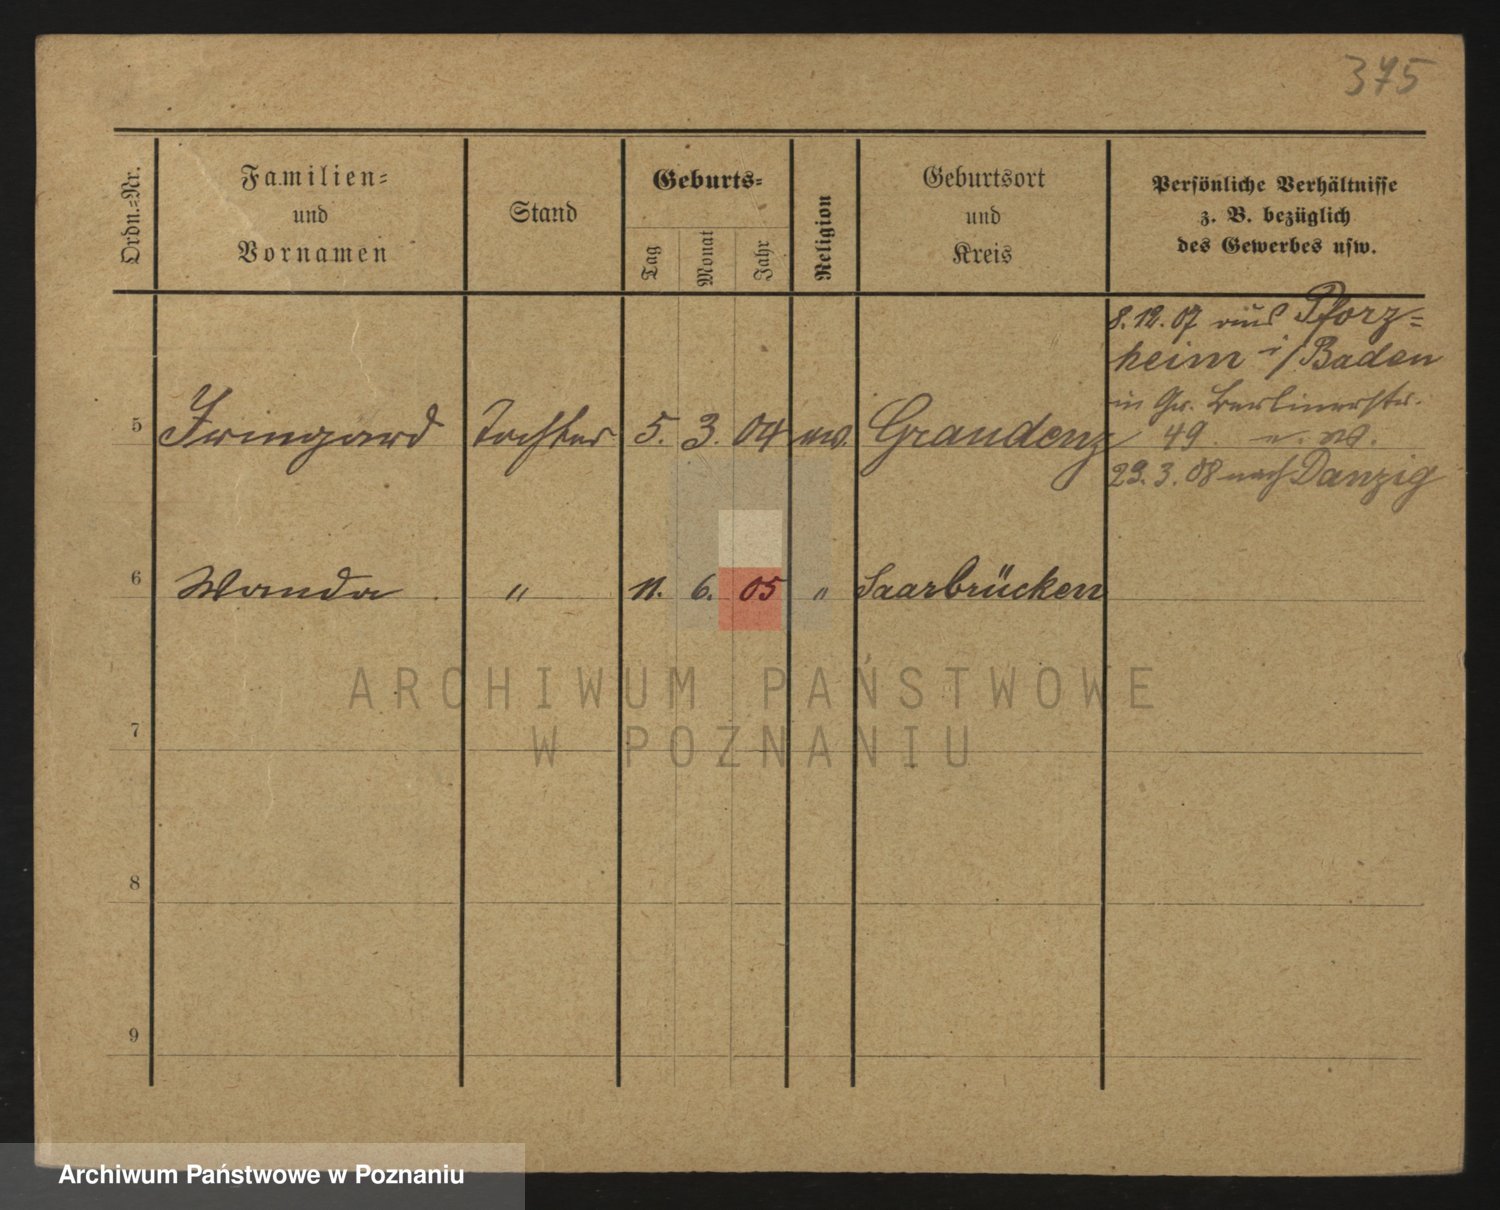 375
Ordn.=Nr.
Familien=
und
Vornamen
Stand
Geburts=
Tag
Monat
Jahr
Religion
Geburtsort
und
Kreis
Persönliche Verhältnisse
z. B. bezüglich
des Gewerbes usw.
8.12.07 aus Pforz=
heim i/Baden
in Gr. Berlinerstr.
49.
29.3.08 nach Danzig
5 Irmgard Tochter 5. 3. 04 ev. Graudenz
6 Wanda " 11. 6. 05 " Saarbrücken
7
8
9
ARCHIWUM PAŃSTWOWE
W POZNANIU
Archiwum Państwowe w Poznaniu